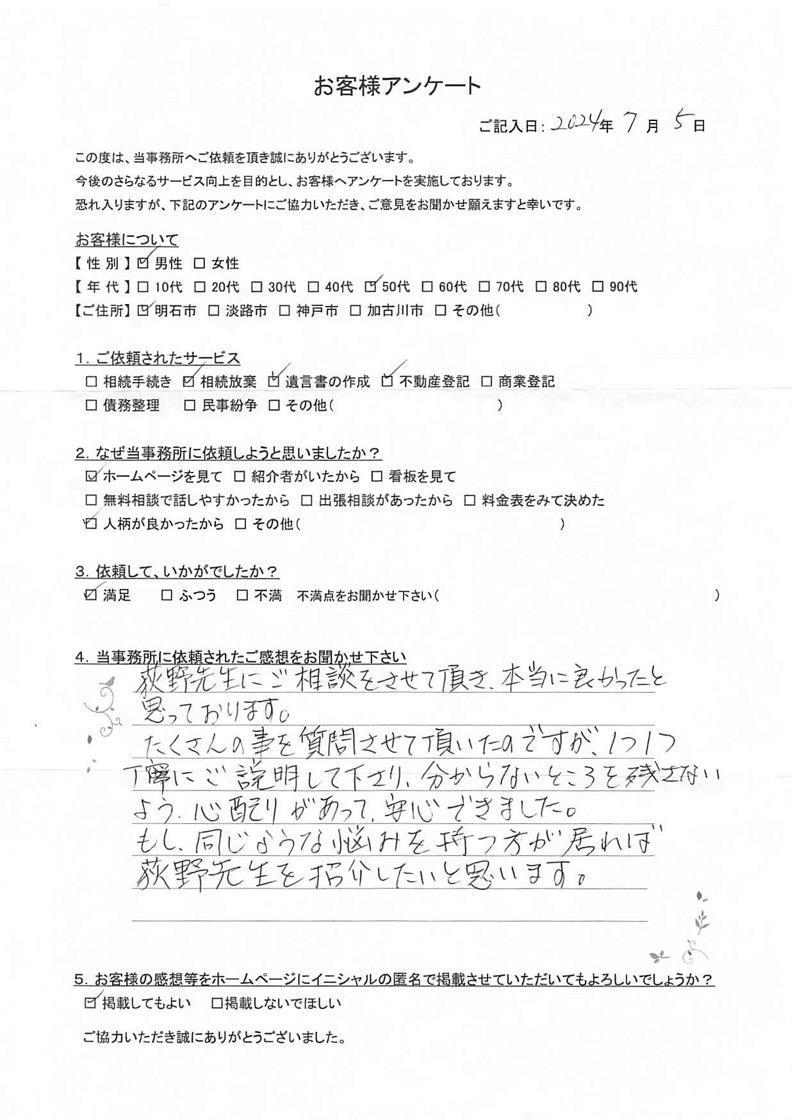 お客様アンケート
ご記入日：2024年 7 月 5 日
この度は、当事務所へご依頼を頂き誠にありがとうございます。
今後のさらなるサービス向上を目的とし、お客様へアンケートを実施しております。
恐れ入りますが、下記のアンケートにご協力いただき、ご意見をお聞かせ願えますと幸いです。
お客様について
【 性 別 】☑ 男性 □ 女性
【 年 代 】□ 10代 □ 20代 □ 30代 □ 40代 ☑ 50代 □ 60代 □ 70代 □ 80代 □ 90代
【ご住所】☑ 明石市 □ 淡路市 □ 神戸市 □ 加古川市 □ その他（ ）
1．ご依頼されたサービス
□ 相続手続き ☑ 相続放棄 ☑ 遺言書の作成 ☑ 不動産登記 □ 商業登記
□ 債務整理 □ 民事紛争 □ その他（ ）
2．なぜ当事務所に依頼しようと思いましたか？
☑ ホームページを見て □ 紹介者がいたから □ 看板を見て
□ 無料相談で話しやすかったから □ 出張相談があったから □ 料金表をみて決めた
☑ 人柄が良かったから □ その他（ ）
3．依頼して、いかがでしたか？
☑ 満足 □ ふつう □ 不満 不満点をお聞かせ下さい（ ）
4．当事務所に依頼されたご感想をお聞かせ下さい
荻野先生にご相談をさせて頂き、本当に良かったと
思っております。
たくさんの事を質問させて頂いたのですが、1つ1つ
丁寧にご説明して下さり、分からないところを残さない
よう、心配りがあって、安心できました。
もし、同じような悩みを持つ方が居れば
荻野先生を紹介したいと思います。
5．お客様の感想等をホームページにイニシャルの匿名で掲載させていただいてもよろしいでしょうか？
☑ 掲載してもよい □掲載しないでほしい
ご協力いただき誠にありがとうございました。